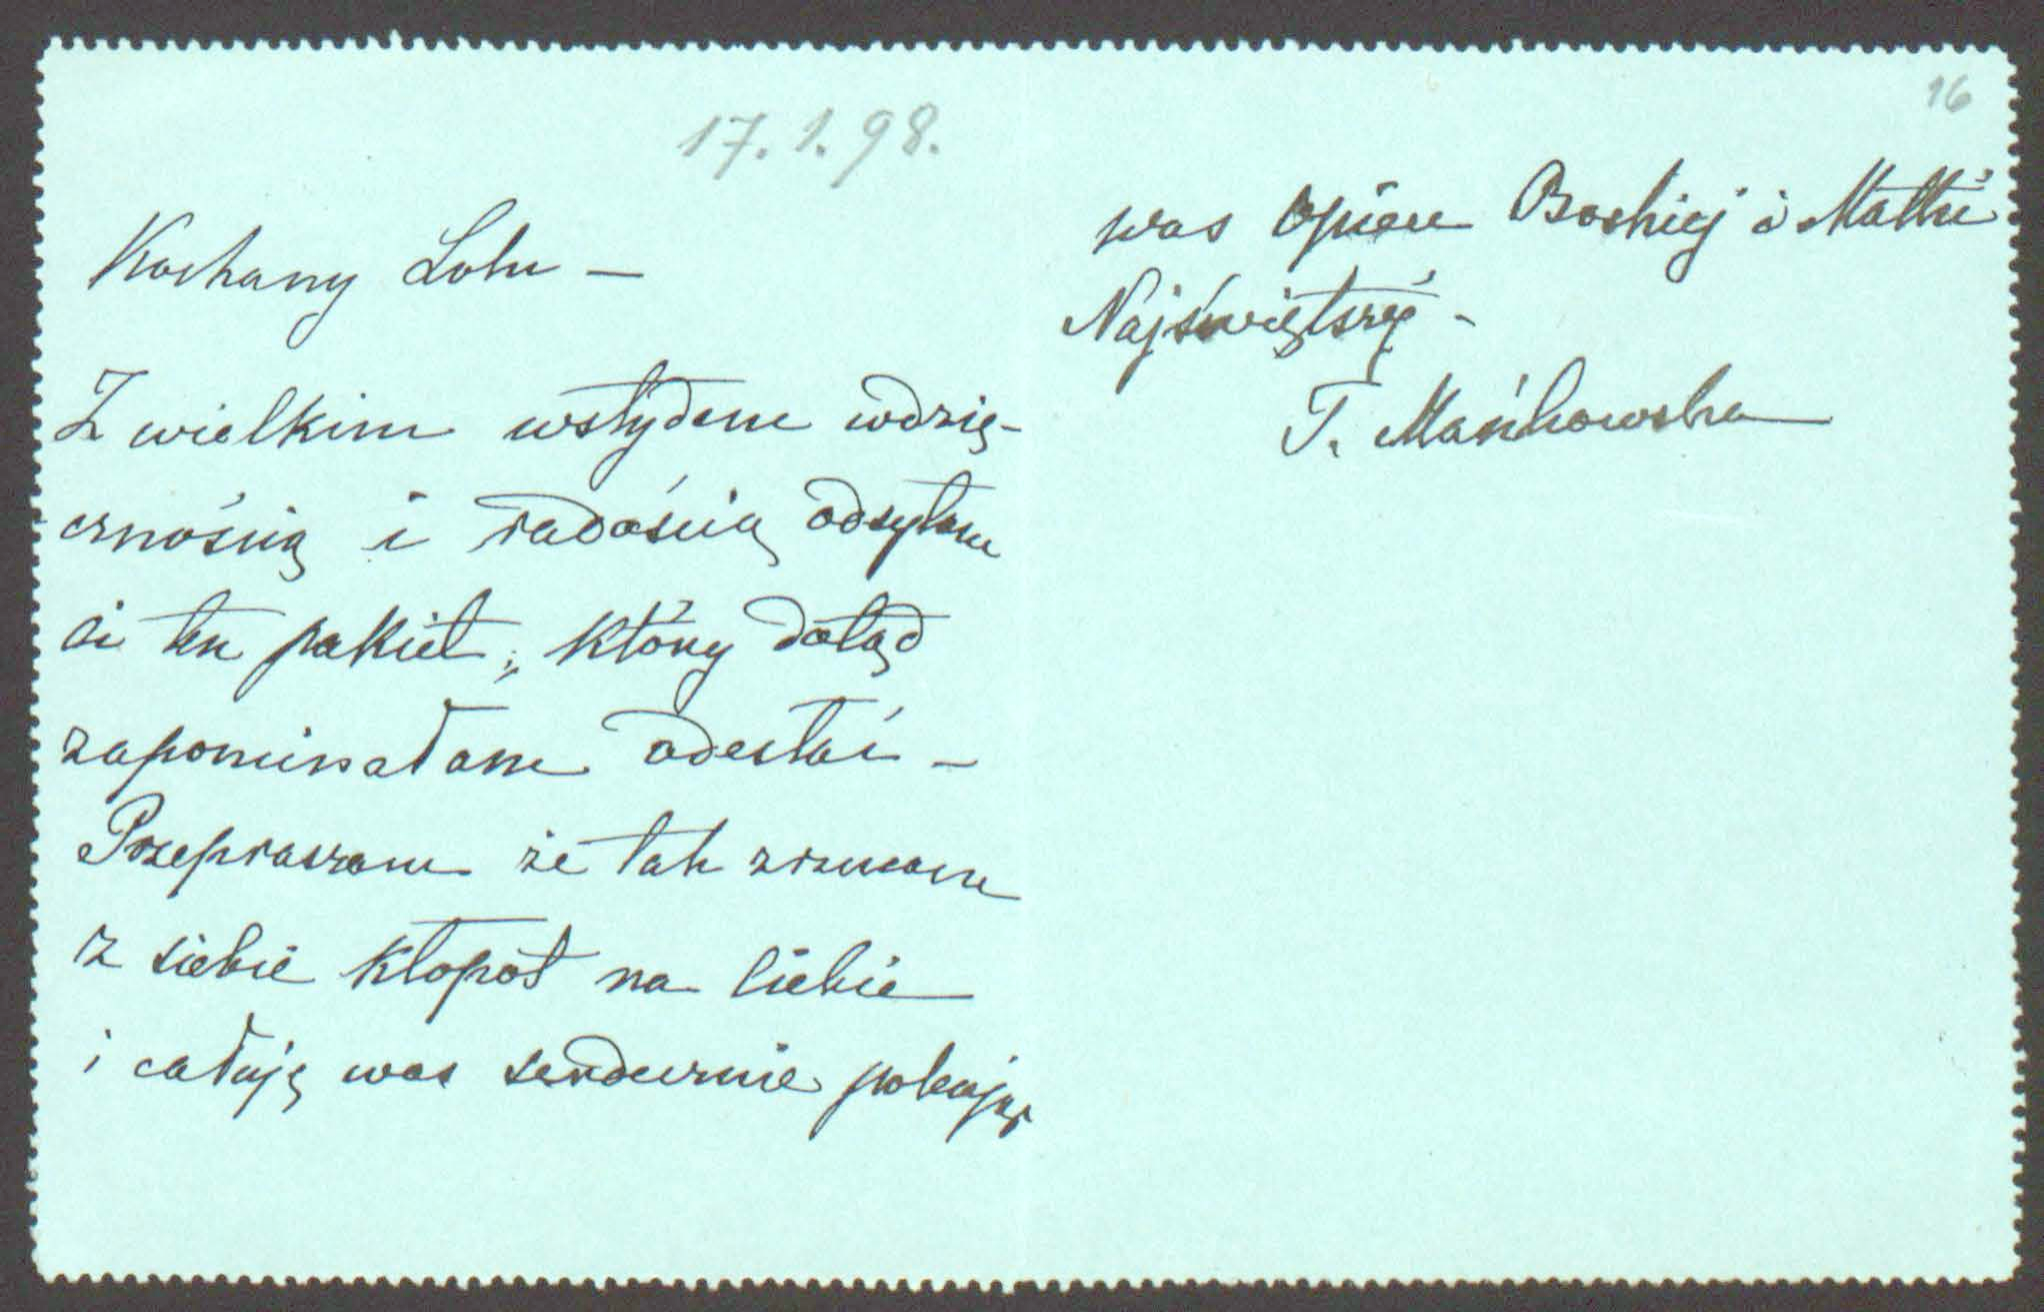 17.1.98.
Kochany Lolu —
Z wielkim wstydem wdzię-
cznością i radością odsyłam
ci ten pakiet, który dotąd
zapominałam odesłać —
Przepraszam że tak zrzucam
z siebie kłopot na Ciebie
i całuję was serdecznie polecając
16
was opiece Boskiej i Matki
Najświętszej -
T. Mańkowska